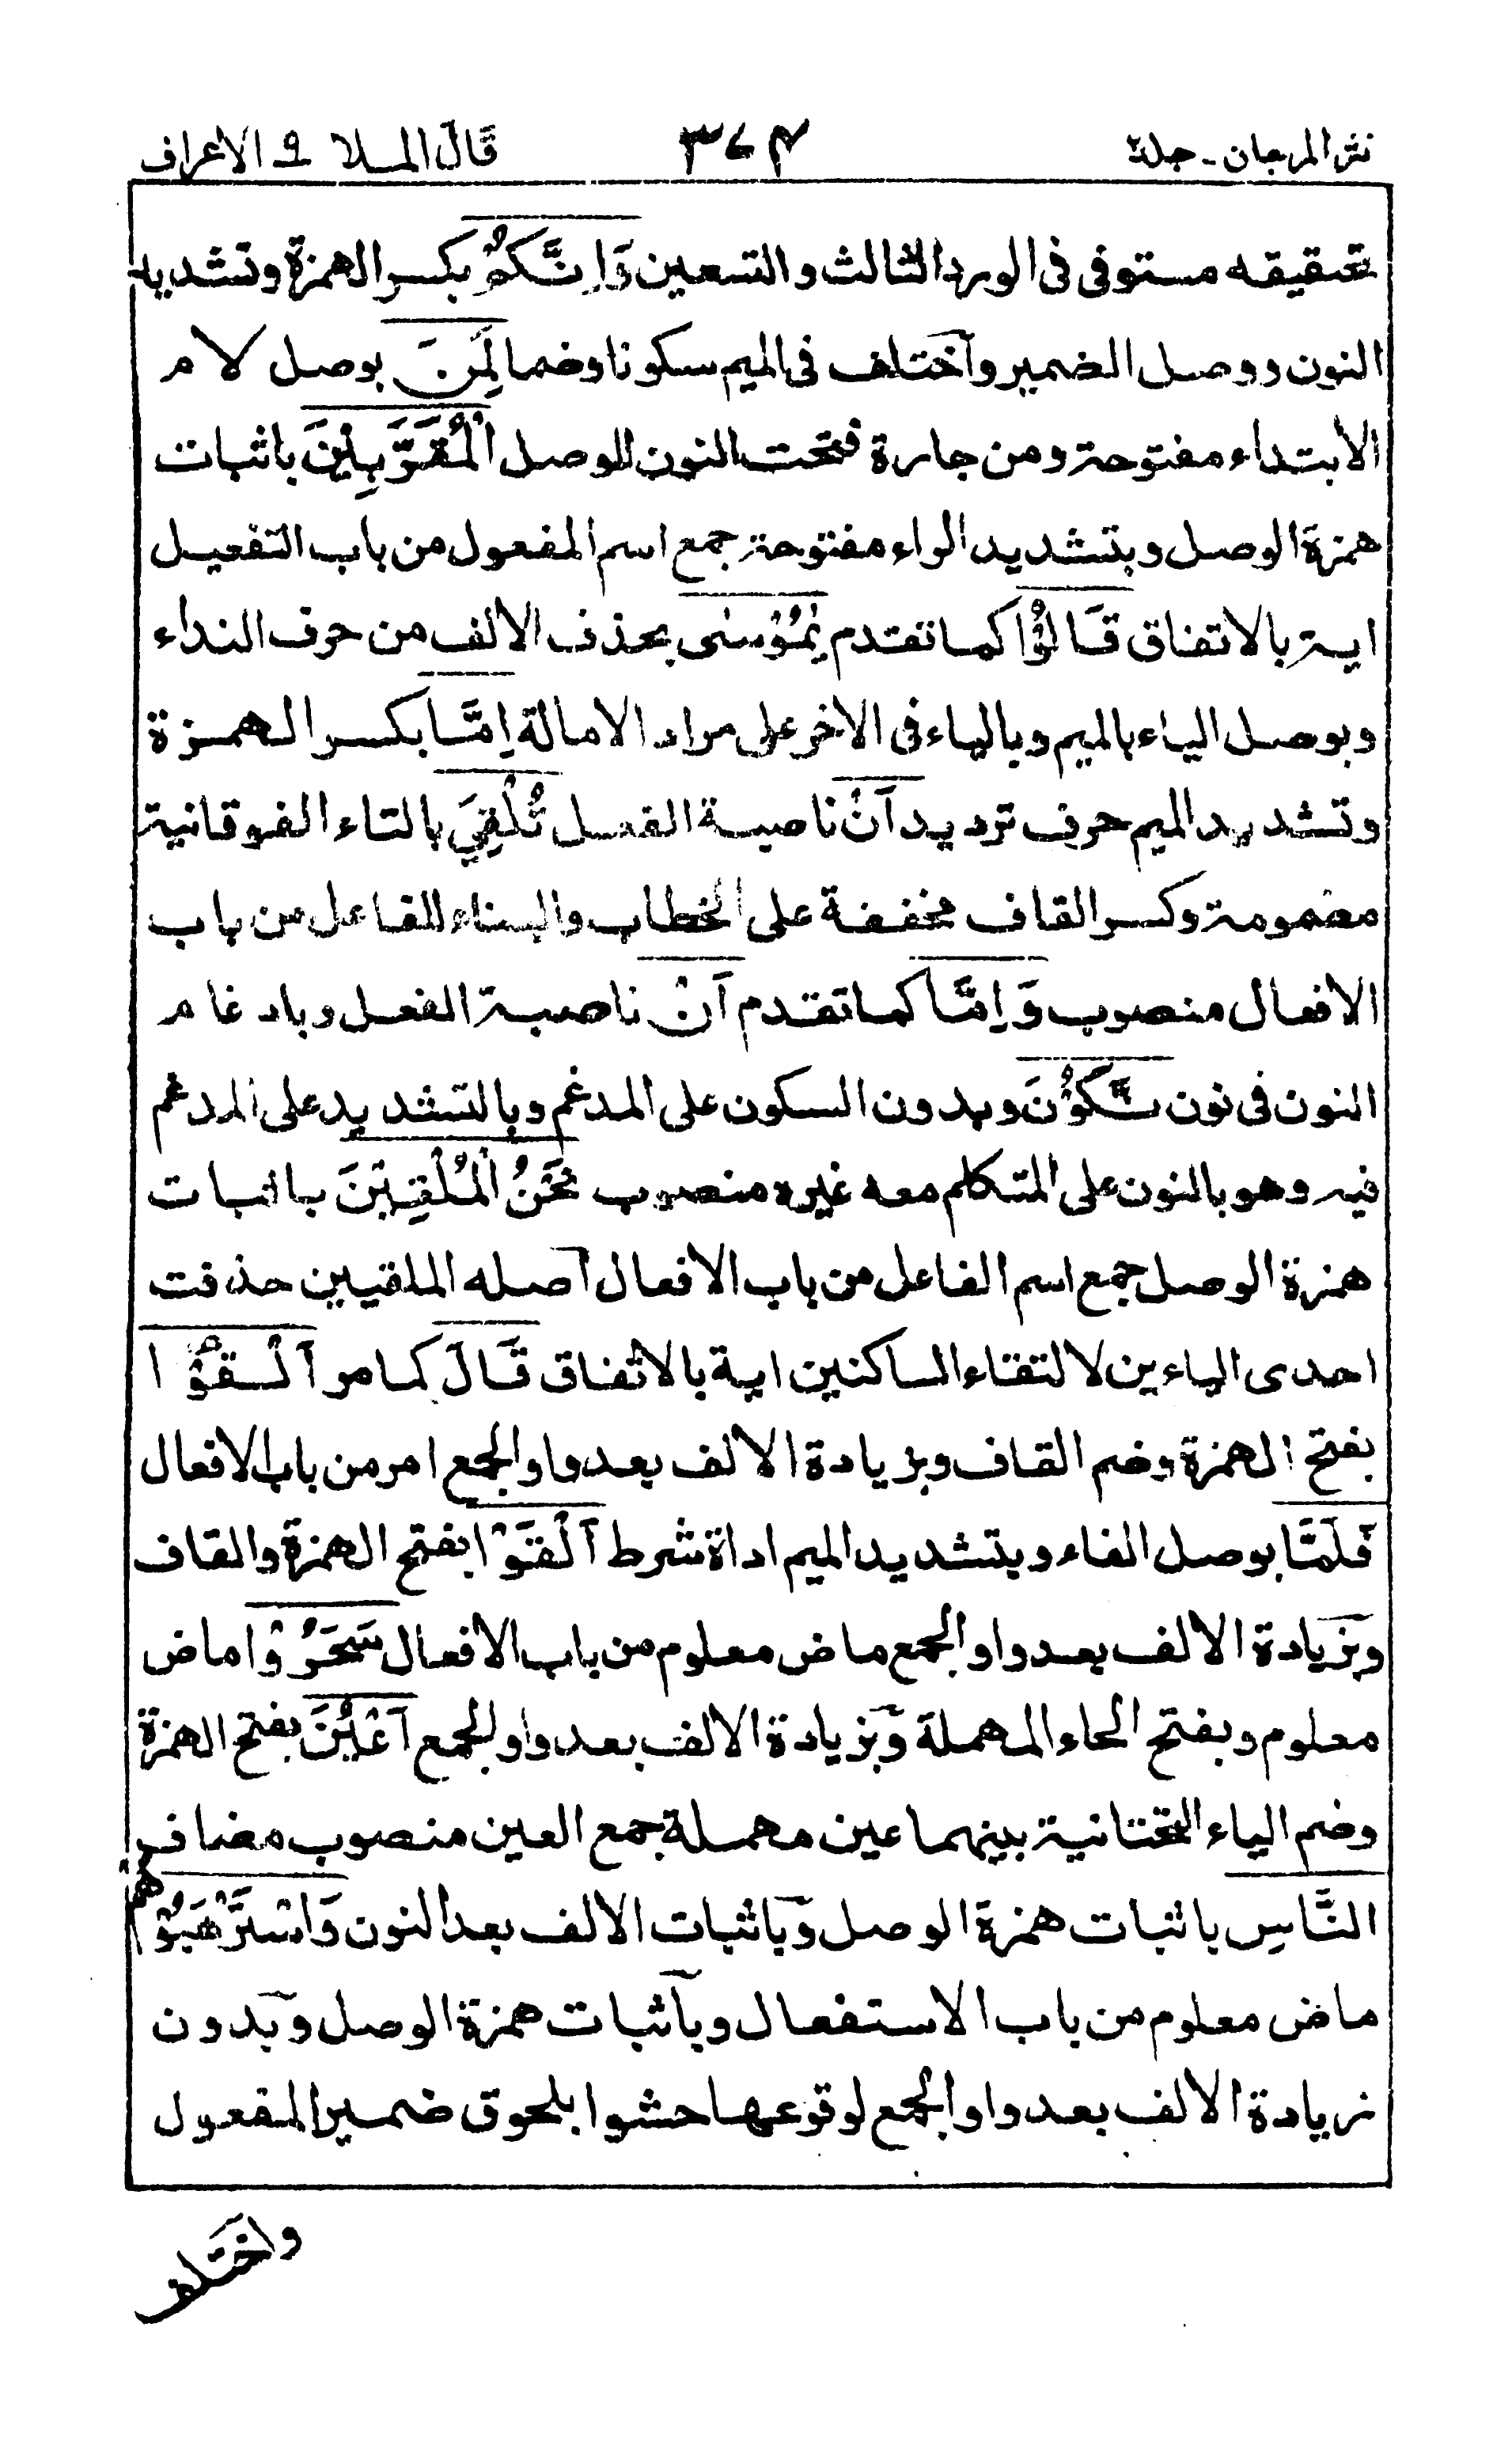 نثر المرجان - جلد٢
٣٧٤
قَالَ الملا ٩ الاعراف
تحقيقه مستوفى فى الورد الثالث والتسعين وَاِنَّكُمْ بكسر الهمزة وتشديد
النون ووصل الضمير وآختلف فى الميم سكونا وضما لَمِنَ بوصل لام
الابتداء مفتوحة ومن جارة فتحت النون للوصل الْمُقَرَّبِيْنَ باثبات
همزة الوصل وبتشديد الراء مفتوحة جمع اسم المفعول من باب التفعيل
اية بالاتفاق قَالُوْا كما تقدم يٰمُوْسٰى بحذف الالف من حرف النداء
وبوصل الياء بالميم وبالياء فى الاخر على مراد الامالة اِمَّا بكسر الهمزة
وتشديد الميم حرف ترديد اَنْ ناصبة الفعل تُلْقِيَ بالتاء الفوقانية
مضمومة وكسر القاف مخففة على الخطاب والبناء للفاعل من باب
الافعال منصوب وَاِمَّا كما تقدم اَنْ ناصبة الفعل وبادغام
النون فى نون نَّكُوْنَ وبدون السكون على المدغم وبالتشديد على المدغم
فيه وهو بالنون على المتكلم معه غيره منصوب نَحْنُ الْمُلْقِيْنَ باثبات
همزة الوصل جمع اسم الفاعل من باب الافعال آصله الملقيين حذفت
احدى الياءين لالتقاء الساكنين اية بالاتفاق قَالَ كما مر اَلْقُوْا
بفتح الهمزة وضم القاف وبزيادة الالف بعد واو الجمع امر من باب الافعال
فَلَمَّا بوصل الفاء وبتشديد الميم اداة شرط اَلْقَوْا بفتح الهمزة والقاف
وبزيادة الالف بعد واو الجمع ماض معلوم من باب الافعال سَحَرُوْا ماض
معلوم وبفتح الحاء المهملة وبزيادة الالف بعد واو الجمع اَعْيُنَ بفتح الهمزة
وضم الياء التحتانية بينهما عين مهملة جمع العين منصوب مضاف
النَّاسِ باثبات همزة الوصل وباثبات الالف بعد النون وَاسْتَرْهَبُوْهُمْ
ماض معلوم من باب الاستفعال وبآثبات همزة الوصل وبدون
زيادة الالف بعد واو الجمع لوقوعها حشوا بلحوق ضمير المفعول
واختلف